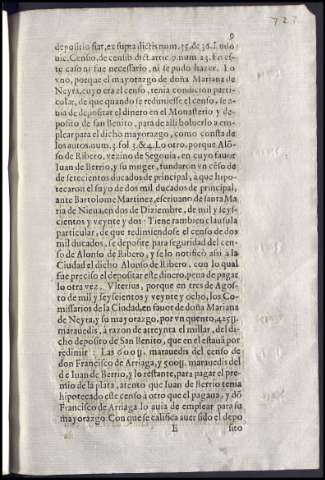 727
9
deposito fiat, ex supra dictis num. 35. & 36. Ludo
uic. Censio, de censib. dict. artic. 9. num 23. En es-
te caso ni fue necessario, ni se pudo hazer. Lo
vno, porque el mayorazgo de doña Mariana de
Neyra, cuyo era el censo, tenia condicion parti-
cular, de que quando se redimiesse el censo, se a-
uia de depositar el dinero en el Monasterio y de-
posito de san Benito, para de alli boluerlo a em-
plear para el dicho mayorazgo, como consta de
los autos. num. 3. fol. 3. & 4. Lo otro, porque Alō-
so de Ribero, vezino de Segouia, en cuyo fauor
Iuan de Berrio, y su muger, fundaron vn cēso de
de setecientos ducados de principal, a que hipo-
tecaron el suyo de dos mil ducados de principal,
ante Bartolome Martinez, escriuano de santa Ma
ria de Nieua, en dos de Diziembre, de mil y seys-
cientos y veynte y dos: Tiene tambien clausula
particular, de que redimiendose el censo de dos
mil ducados, se deposite para seguridad del cen-
so de Alonso de Ribero, y se lo notificò assi a la
Ciudad el dicho Alonso de Ribero, con lo qual
fue preciso el depositar este dinero, pena de pagar
lo otra vez. Vlterius, porque en tres de Agos-
to de mil y seyscientos y veynte y ocho, los Co-
missarios de la Ciudad, en fauor de doña Mariana
de Neyra, y su mayorazgo, por vn quento, 425U.
marauedis, à razon de a treynta el millar, del di-
cho deposito de San Benito, que en el estaua por
redimir: Las 600U. marauedis del censo de
don Francisco de Arriaga, y 500U. marauedis del
de Iuan de Berrio, y lo restante, para pagar el pre-
mio de la plata, atento que Iuan de Berrio tenia
hipotecado este censo à otro que el pagaua, y dō
Francisco de Arriaga lo auia de emplear para su
mayorazgo. Con que se califica auer sido el depo
Ii sito